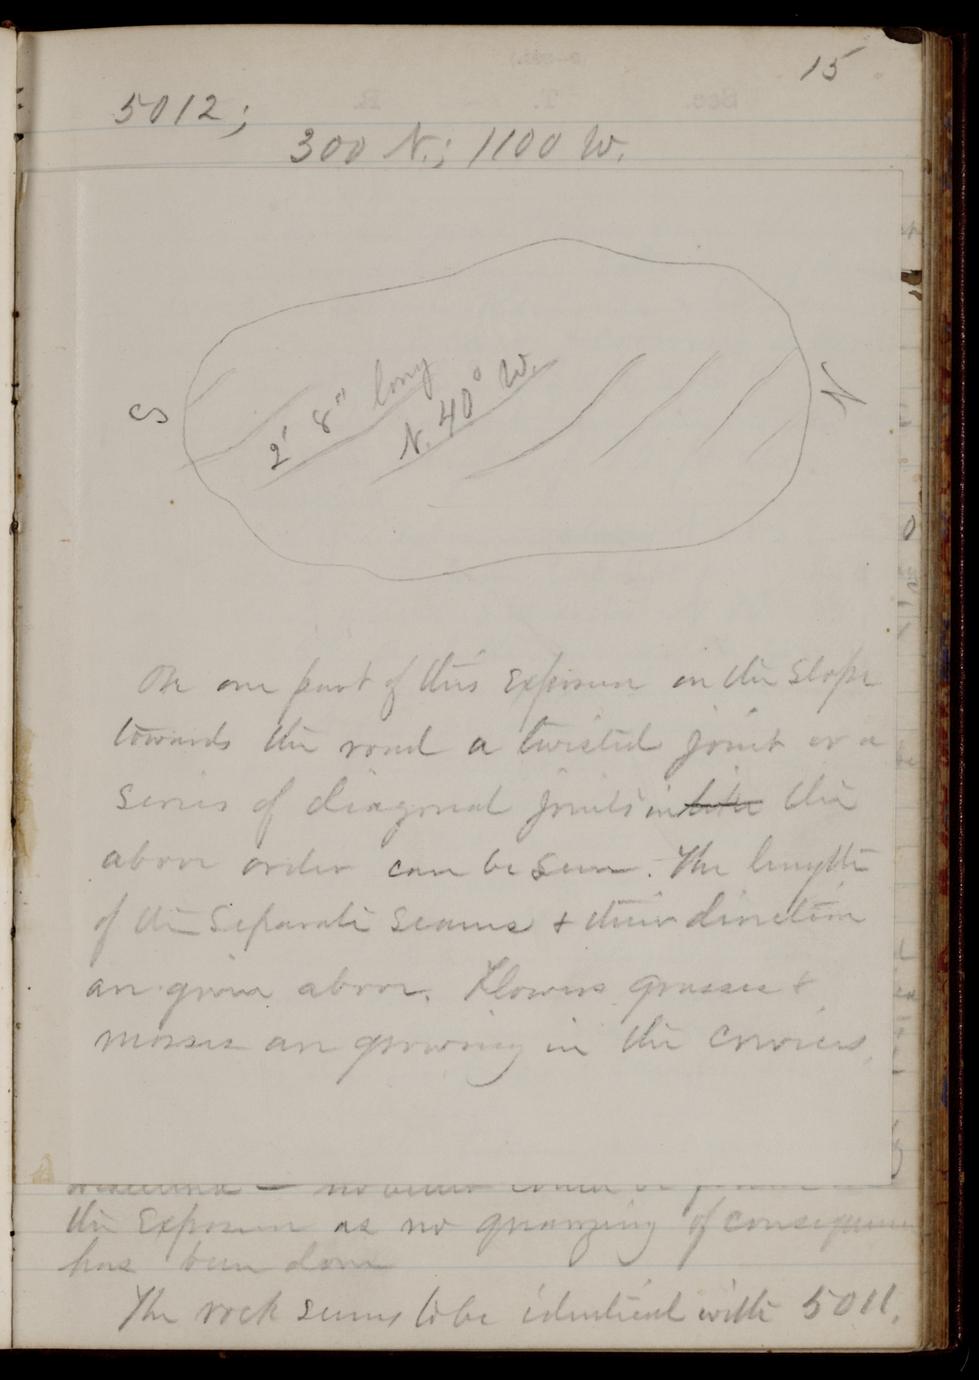 15
5012;
300 N.; 1100 W.
S
2' 8" long
N. 40° W.
N
On one part of this Exposure on the Slope
towards the road a twisted joint or a
series of diagonal joints in the
above order can be seen. The lengths
of the Separate Seams & their direction
are given above. Flowers grasses &
mosses are growing in the crevices.
no better could be
the Exposure as no quarrying of consequence
has been done
The rock seems to be identical with 5011.